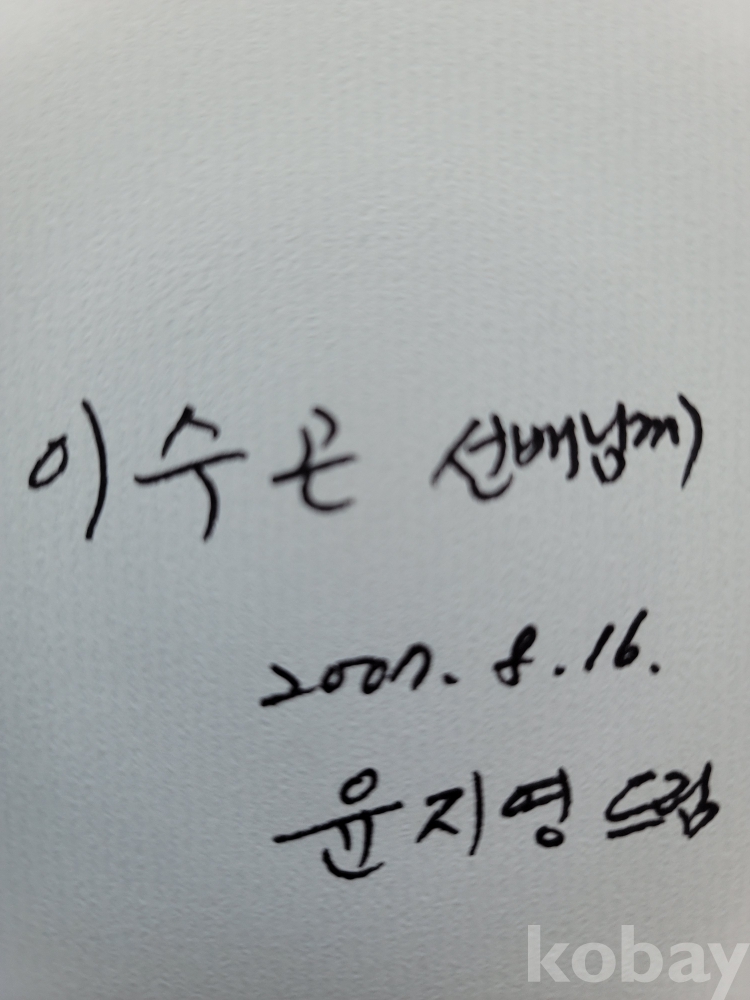 이수곤 선배님께
2007. 8. 16.
윤지영 드림
kobay